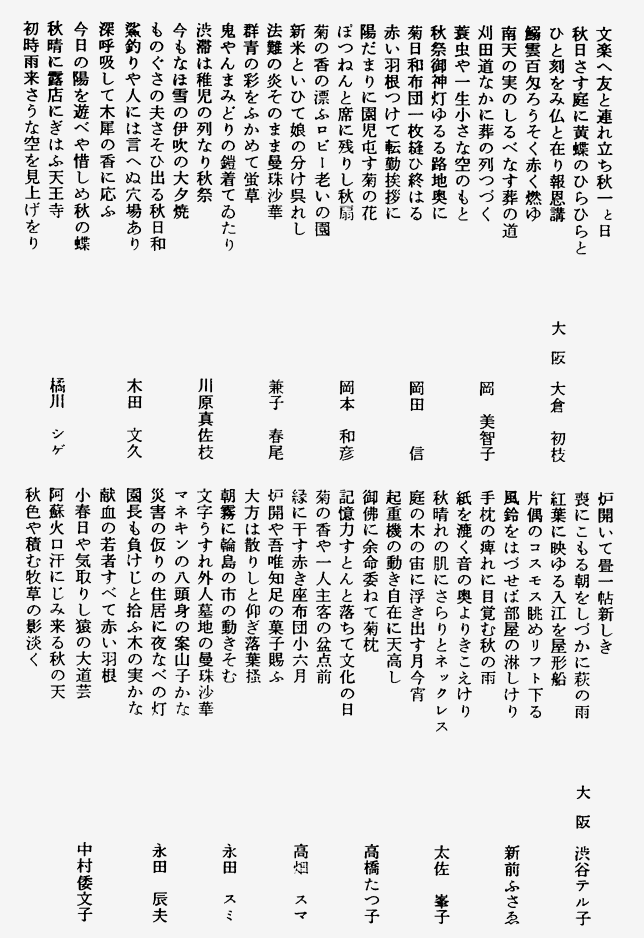 文楽へ友と連れ立ち秋一と日
秋日さす庭に黄蝶のひらひらと
ひと刻をみ仏と在り報恩講　大阪　大倉　初枝
鰯雲百匁ろうそく赤く燃ゆ
南天の実のしるべなす葬の道
刈田道なかに葬の列つづく　岡　美智子
蓑虫や一生小さな空のもと
秋祭御神灯ゆるる路地奥に
菊日和布団一枚縫ひ終はる　岡田　信
赤い羽根つけて転勤挨拶に
陽だまりに園児屯す菊の花
ぽつねんと席に残りし秋扇　岡本　和彦
菊の香の漂ふロビー老いの園
新米といひて娘の分け呉れし
法難の炎そのまま曼珠沙華　兼子　春尾
群青の彩をふかめて蛍草
鬼やんまみどりの鎧着てゐたり
渋滞は稚児の列なり秋祭　川原真佐枝
今もなほ雪の伊吹の大夕焼
ものぐさの夫さそひ出る秋日和
鯊釣りや人には言へぬ穴場あり　木田　文久
深呼吸して木犀の香に応ふ
今日の陽を遊べや惜しめ秋の蝶
秋晴に露店にぎはふ天王寺　橘川　シゲ
初時雨来さうな空を見上げをり
炉開いて畳一帖新しき
喪にこもる朝をしづかに萩の雨　大阪　渋谷テル子
紅葉に映ゆる入江を屋形船
片偶のコスモス眺めリフト下る
風鈴をはづせば部屋の淋しけり　新前ふさゑ
手枕の痺れに目覚む秋の雨
紙を漉く音の奥よりきこえけり
秋晴れの肌にさらりとネックレス　太佐　峯子
庭の木の宙に浮き出す月今宵
起重機の動き自在に天高し
御佛に余命委ねて菊枕　高橋たつ子
記憶力すとんと落ちて文化の日
菊の香や一人主客の盆点前
縁に干す赤き座布団小六月　高畑　スマ
炉開や吾唯知足の菓子賜ふ
大方は散りしと仰ぎ落葉掻
朝霧に輪島の市の動きそむ　永田　スミ
文字うすれ外人墓地の曼珠沙華
マネキンの八頭身の案山子かな
災害の仮りの住居に夜なべの灯　永田　辰夫
園長も負けじと拾ふ木の実かな
献血の若者すべて赤い羽根
小春日や気取りし猿の大道芸　中村倭文子
阿蘇火口汗にじみ来る秋の天
秋色や積む牧草の影淡く